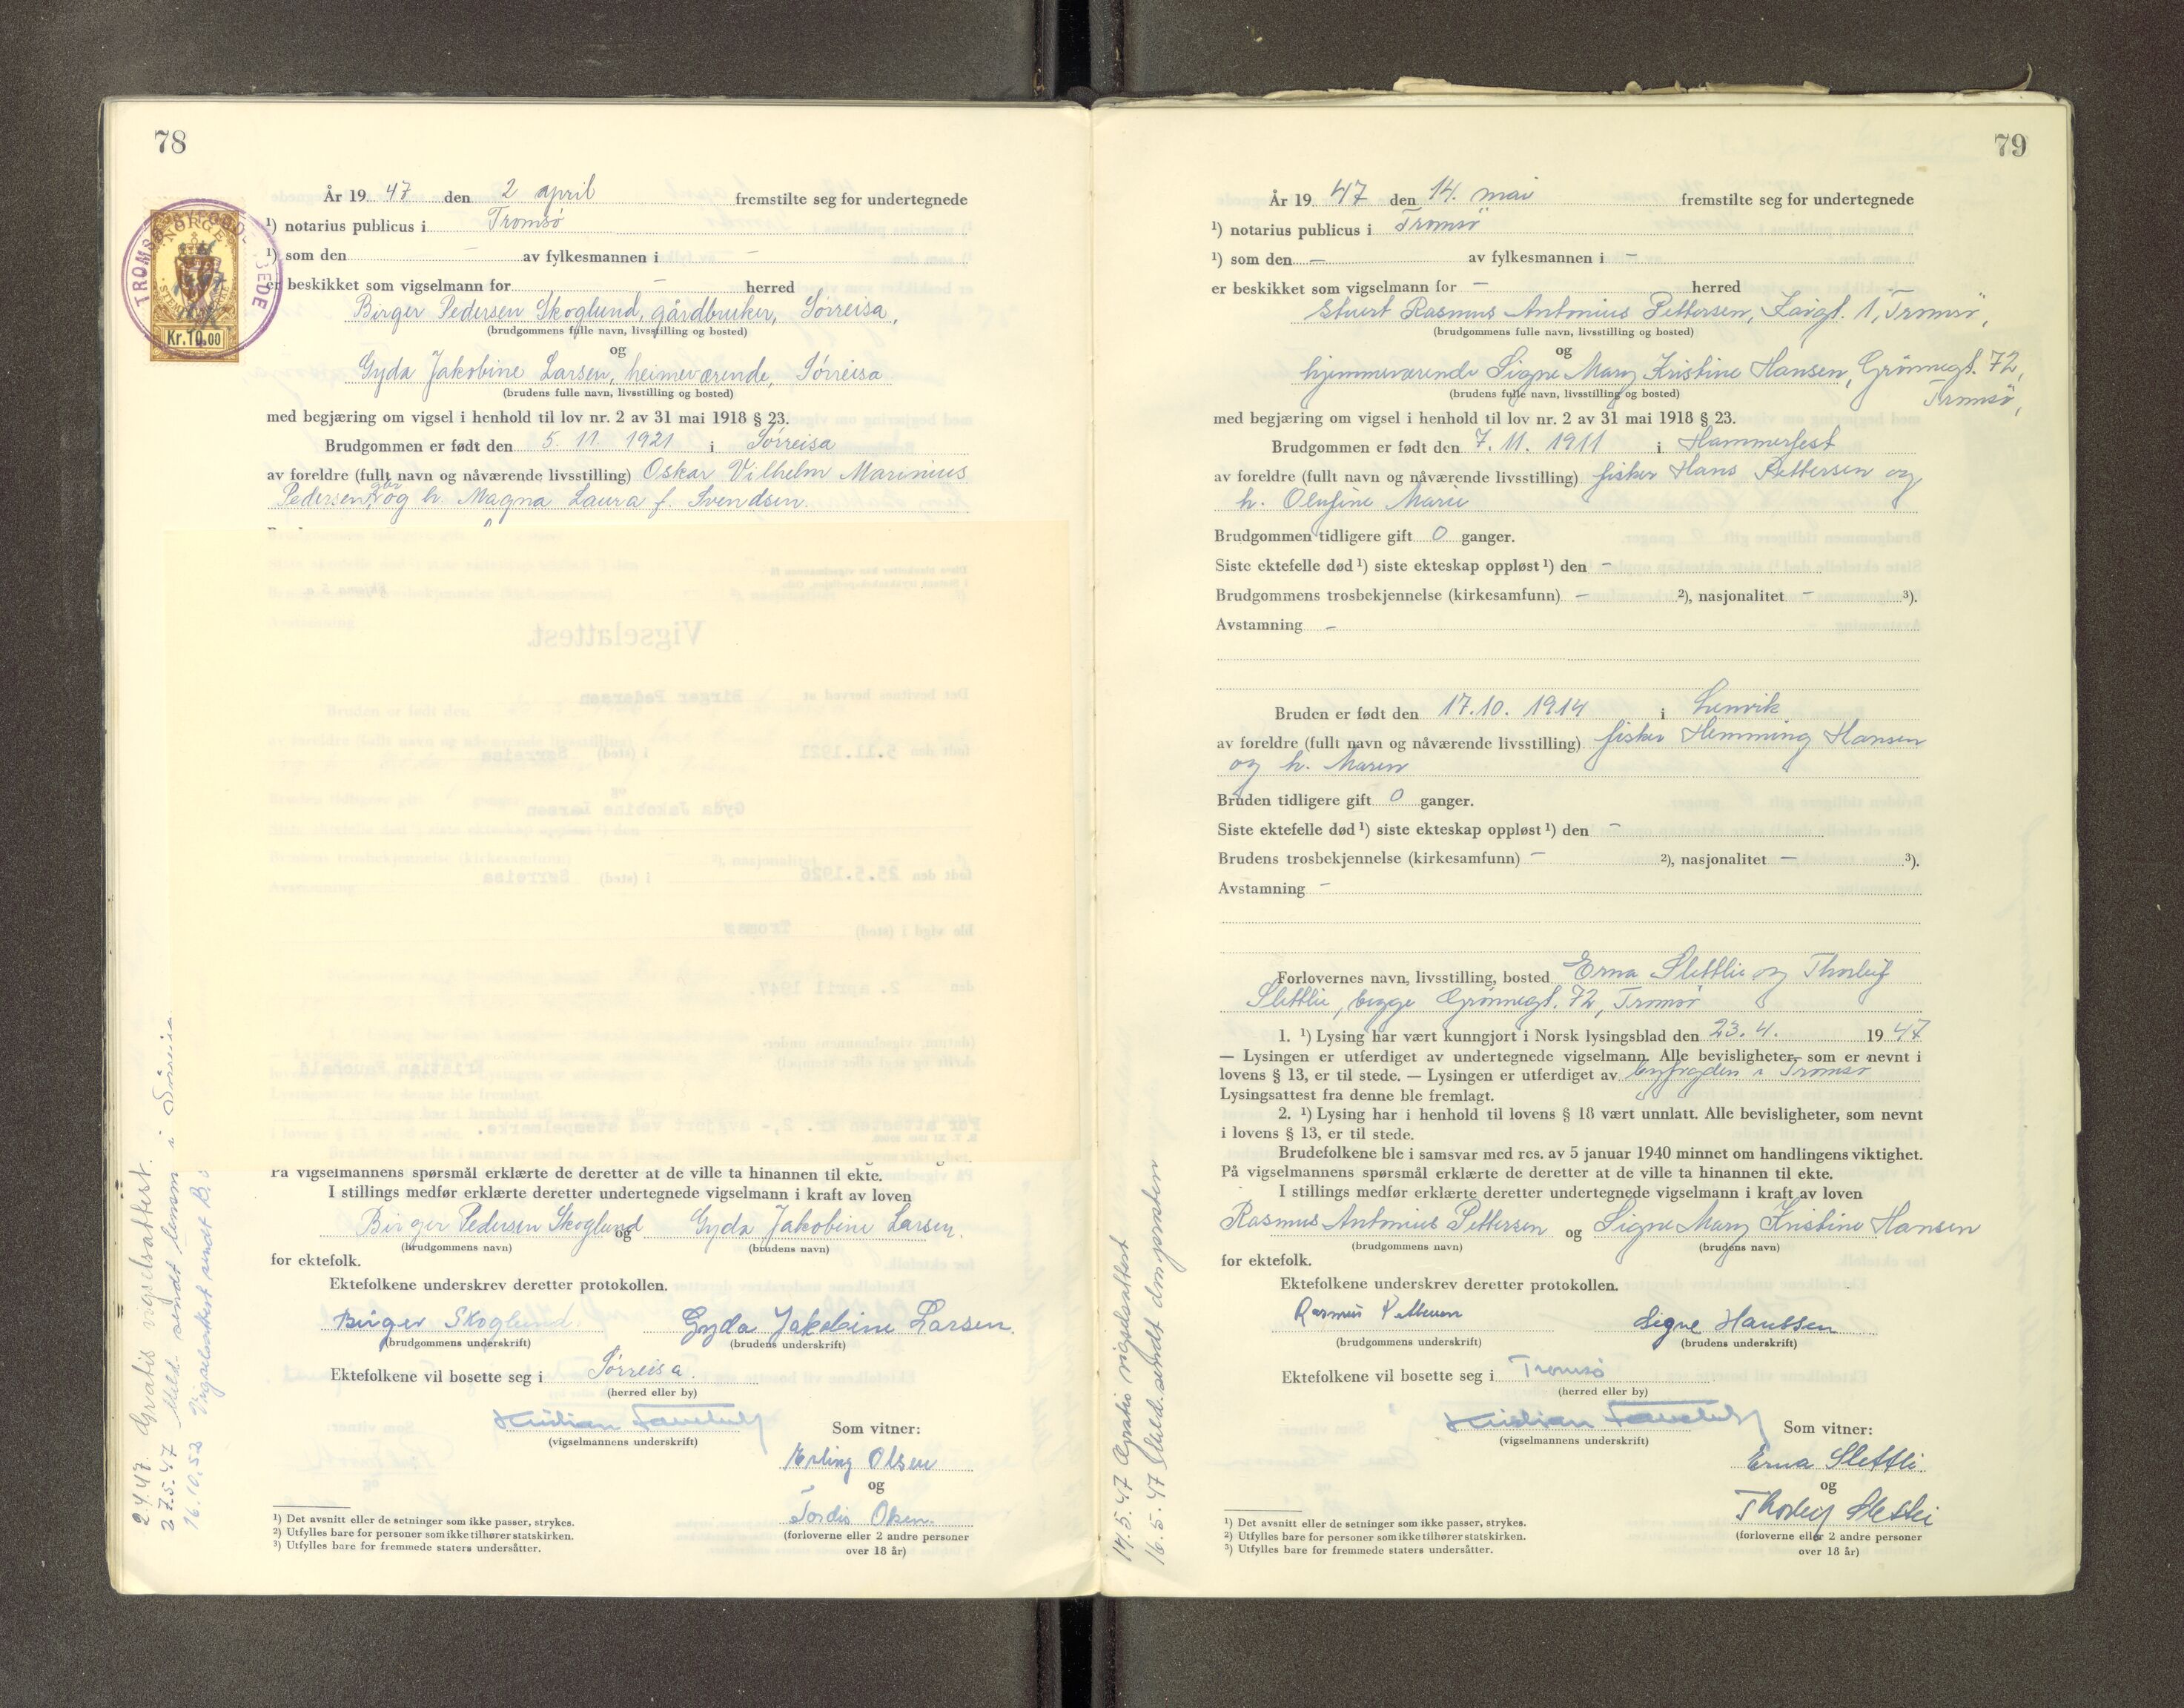 78
År 19 47 den 2 april fremstilte seg for undertegnede
¹) notarius publicus i Tromsø
¹) som den – av fylkesmannen i –
er beskikket som vigselmann for – herred
Birger Pedersen Skoglund, gårdbruker, Sørreisa,
(brudgommens fulle navn, livsstilling og bosted)
og
Gyda Jakobine Larsen, heimeværende, Sørreisa
(brudens fulle navn, livsstilling og bosted)
med begjæring om vigsel i henhold til lov nr. 2 av 31 mai 1918 § 23.
Brudgommen er født den 5. 11. 1921 i Sørreisa
av foreldre (fullt navn og nåværende livsstilling) Oskar Vilhelm Marinius
Pedersen, gbr og h. Magna Laura f. Svendsen.
Vigselattest.
Det bevitnes herved at Birger Pedersen
født den 5.11.1921 i (sted) Sørreisa
og
Gyda Jakobine Larsen
født den 25.5.1926 i (sted) Sørreisa
ble vigd i (sted) Tromsø
den 2. april 1947.
(datum, vigselmannens under-
skrift og segl eller stempel)
For attesten kr. 2,- avgjort ved stempelmerke.
På vigselmannens spørsmål erklærte de deretter at de ville ta hinannen til ekte.
I stillings medfør erklærte deretter undertegnede vigselmann i kraft av loven
Birger Pedersen Skoglund og Gyda Jakobine Larsen.
(brudgommens navn) (brudens navn)
for ektefolk.
Ektefolkene underskrev deretter protokollen.
Birger Skoglund. Gyda Jakobine Larsen.
(brudgommens underskrift) (brudens underskrift)
Ektefolkene vil bosette seg i Sørreisa.
(herred eller by)
(vigselmannens underskrift)
Som vitner:
Erling Olsen
og
Tordis Olsen.
(forloverne eller 2 andre personer
over 18 år)
¹) Det avsnitt eller de setninger som ikke passer, strykes.
²) Utfylles bare for personer som ikke tilhører statskirken.
³) Utfylles bare for fremmede staters undersåtter.
2.4.47. Gratis vigselsattest.
27.5.47 Meld. sendt lensm. i Sørreisa
16.10.52 Vigselsattest sendt B.S
NORGE
Kr.10.00
79
År 19 47 den 14. mai fremstilte seg for undertegnede
¹) notarius publicus i Tromsø
¹) som den – av fylkesmannen i –
er beskikket som vigselmann for – herred
Stuert Rasmus Antonius Pettersen, Kaigt. 1, Tromsø,
(brudgommens fulle navn, livsstilling og bosted)
og
hjemmeværende Signe Mary Kristine Hansen, Grønnegt. 72,
Tromsø,
(brudens fulle navn, livsstilling og bosted)
med begjæring om vigsel i henhold til lov nr. 2 av 31 mai 1918 § 23.
Brudgommen er født den 7. 11. 1911 i Hammerfest
av foreldre (fullt navn og nåværende livsstilling) fisker Hans Pettersen og
h. Olufine Marie
Brudgommen tidligere gift 0 ganger.
Siste ektefelle død ¹) siste ekteskap oppløst ¹) den –
Brudgommens trosbekjennelse (kirkesamfunn) – ²), nasjonalitet – ³).
Avstamning –
Bruden er født den 17.10. 1914 i Lenvik
av foreldre (fullt navn og nåværende livsstilling) fisker Hemming Hansen
og h. Maren
Bruden tidligere gift 0 ganger.
Siste ektefelle død ¹) siste ekteskap oppløst ¹) den –
Brudens trosbekjennelse (kirkesamfunn) – ²), nasjonalitet – ³).
Avstamning –
Forlovernes navn, livsstilling, bosted Erna Slettli og Thorleif
Slettli, begge Grønnegt. 72, Tromsø
1. ¹) Lysing har vært kunngjort i Norsk lysingsblad den 23. 4. 19 47
— Lysingen er utferdiget av undertegnede vigselmann. Alle bevisligheter, som er nevnt i
lovens § 13, er til stede. — Lysingen er utferdiget av byfogden i Tromsø
Lysingsattest fra denne ble fremlagt.
2. ¹) Lysing har i henhold til lovens § 18 vært unnlatt. Alle bevisligheter, som nevnt
i lovens § 13, er til stede.
Brudefolkene ble i samsvar med res. av 5 januar 1940 minnet om handlingens viktighet.
På vigselmannens spørsmål erklærte de deretter at de ville ta hinannen til ekte.
I stillings medfør erklærte deretter undertegnede vigselmann i kraft av loven
Rasmus Antonius Pettersen og Signe Mary Kristine Hansen
(brudgommens navn) (brudens navn)
for ektefolk.
Ektefolkene underskrev deretter protokollen.
Rasmus Pettersen Signe Hanssen
(brudgommens underskrift) (brudens underskrift)
Ektefolkene vil bosette seg i Tromsø
(herred eller by)
(vigselmannens underskrift)
Som vitner:
Erna Slettli
og
Thorleif Slettli
(forloverne eller 2 andre personer
over 18 år)
¹) Det avsnitt eller de setninger som ikke passer, strykes.
²) Utfylles bare for personer som ikke tilhører statskirken.
³) Utfylles bare for fremmede staters undersåtter.
14.5.47 Gratis vigselsattest
16.5.47 Meld. sendt domprosten